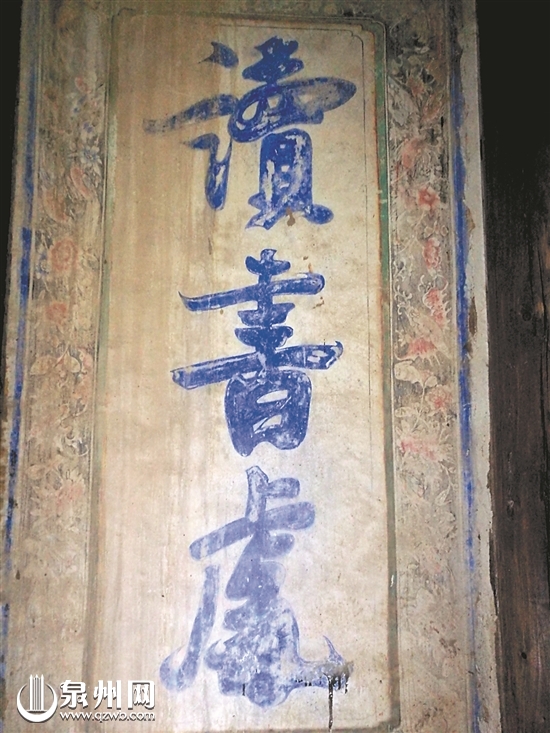 讀書處
泉州网
www.qzwb.com